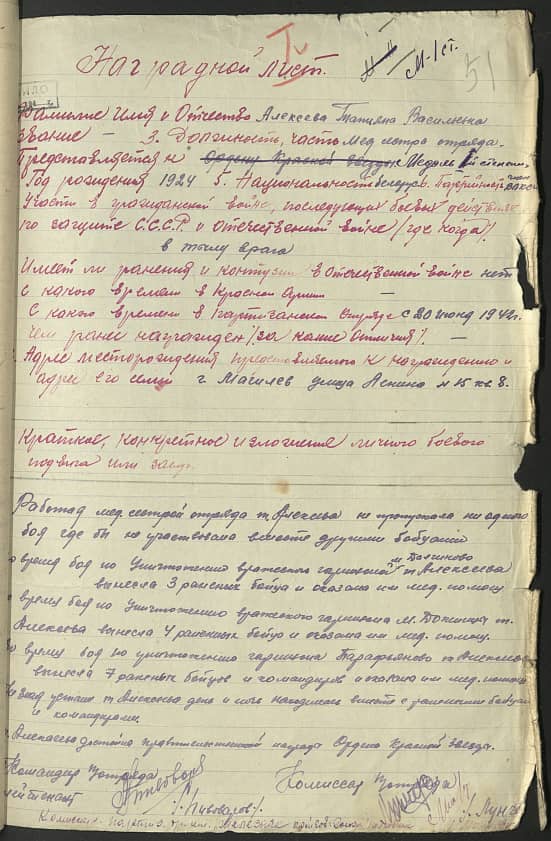 Наградной лист.
М-1ст.
51
Фамилие Имя и Отчество Алексеева Татьяна Василевна
Звание — 3. Должность, часть Мед сестра отряда.
Представляется к Ордену Красной Звезды Медаль
Год рождения 1924 5. Национальность белорус 6. Партийность
Участи в гражданской войне, последующих боевых действиях
по защите С.С.С.Р. и Отечественной войне /где когда/.
в тылу врага
Имеет ли ранения и контузии в Отечественной войне нет
С какого времени в Красной Армии —
С какого времени в Партизанском отряде с 20 июня 1942г.
Чем ранее награжден /за какие отличия/. —
Адрес месторождения представляемого к награждению и
адрес его семьи г. Магилев улица Ленина № 15 кв. 8.
Краткое, конкретное изложение личного боевого
подвига или заслуг.
Работая мед. сестрой отряда т. Алексеева не пропускала ни одного
боя где бы не участвовала вместе другими бойцами
время боя по Уничтожению вражеского гарнизона м. Долиново т. Алексеева
вынесла 3 раненых бойца и оказала им мед. помощь
время боя по Уничтожению вражеского гарнизона м. Докшицы т.
Алексеева вынесла 4 раненых бойца и оказала им мед. помощь.
Во время боя по уничтожению гарнизона Парафьяново т. Алексеева
вынесла 7 раненых бойцов и командиров и оказала им мед. помощь
т. Алексеева день и ночь находилась вместе с ранеными бойцами
и командирами.
т. Алексеева достойна правительственной награды Ордена Красной Звезды.
Командир Отряда Комиссар Отряда
лейтенант
/Пивоваров/. /Лунь